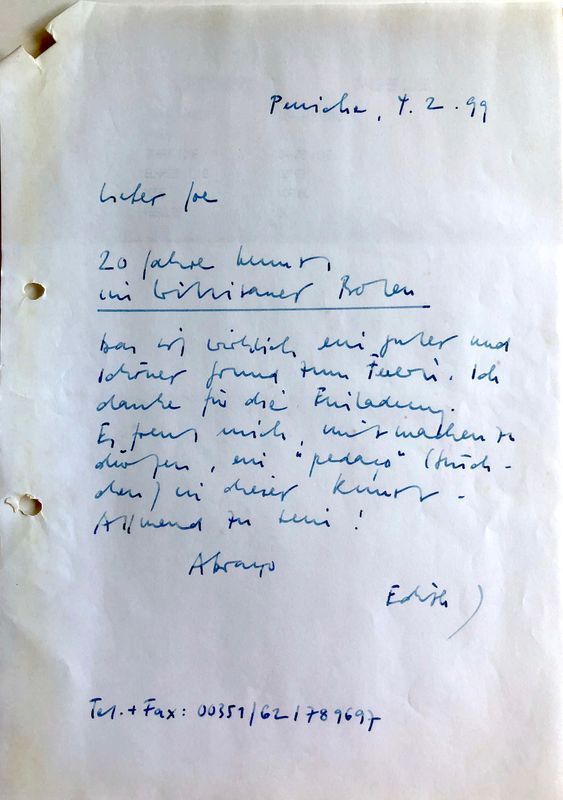 Peniche, 4.2.99
Lieber Joe
20 Jahre Kunst,
im Willisauer Boten
Das ist wirklich ein guter und
schöner Grund zum Feiern. Ich
danke für die Einladung.
Es freut mich, mitmachen zu
dürfen, ein "pedaço" (Stück-
chen) in dieser Kunst-
Allmend zu sein!
Abraço
Edith
Tel.+Fax: 00351/62/789697